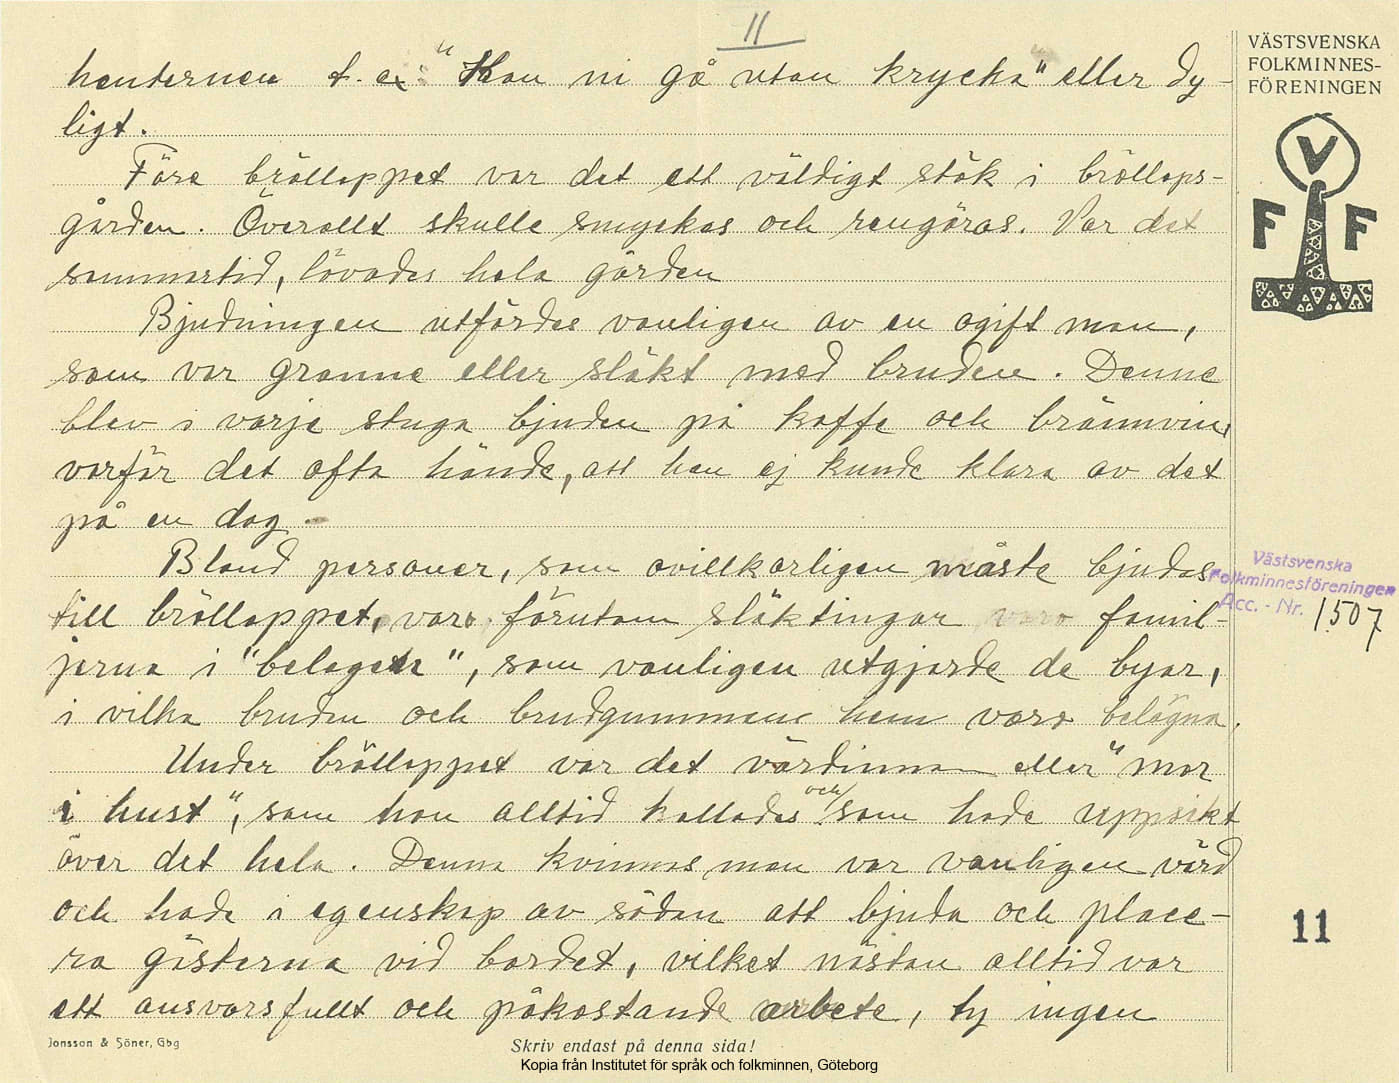 11
VÄSTSVENSKA
FOLKMINNES-
FÖRENINGEN
V
F F
henternen t. ex. "Kan ni gå utan krycka" eller dy-
ligt.
Före brölloppet var det ett väldigt stök i bröllops-
gården. Överallt skulle smyckas och rengöras. Var det
sommartid, lövades hela gården
Bjudningen utfördes vanligen av en ogift man,
som var granne eller släkt med bruden. Denne
blev i varje stuga bjuden på kaffe och brännvin,
varför det ofta hände, att han ej kunde klara av det
på en dag.
Bland personer, som ovillkorligen måste bjudas
till brölloppet, voro, förutom släktingar familj-
jerna i "belaget", som vanligen utgjorde de byar,
i vilka bruden och brudgummens hem voro belägna.
Under brölloppet var det värdinnan eller "mor
i hust", som hon alltid kallades och som hade uppsikt
över det hela. Denna kvinnas man var vanligen värd
och hade i egenskap av sådan att bjuda och place-
ra gästerna vid bordet, vilket nästan alltid var
ett ansvarsfullt och påkostande arbete, ty ingen
Västsvenska
Folkminnesföreningen
Acc. - Nr. 1507
11
Jonsson & Söner, Gbg
Skriv endast på denna sida!
Kopia från Institutet för språk och folkminnen, Göteborg